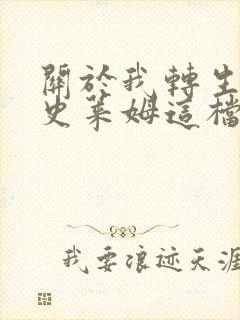 關於我轉生
史萊姆這檔
我要浪迹天涯